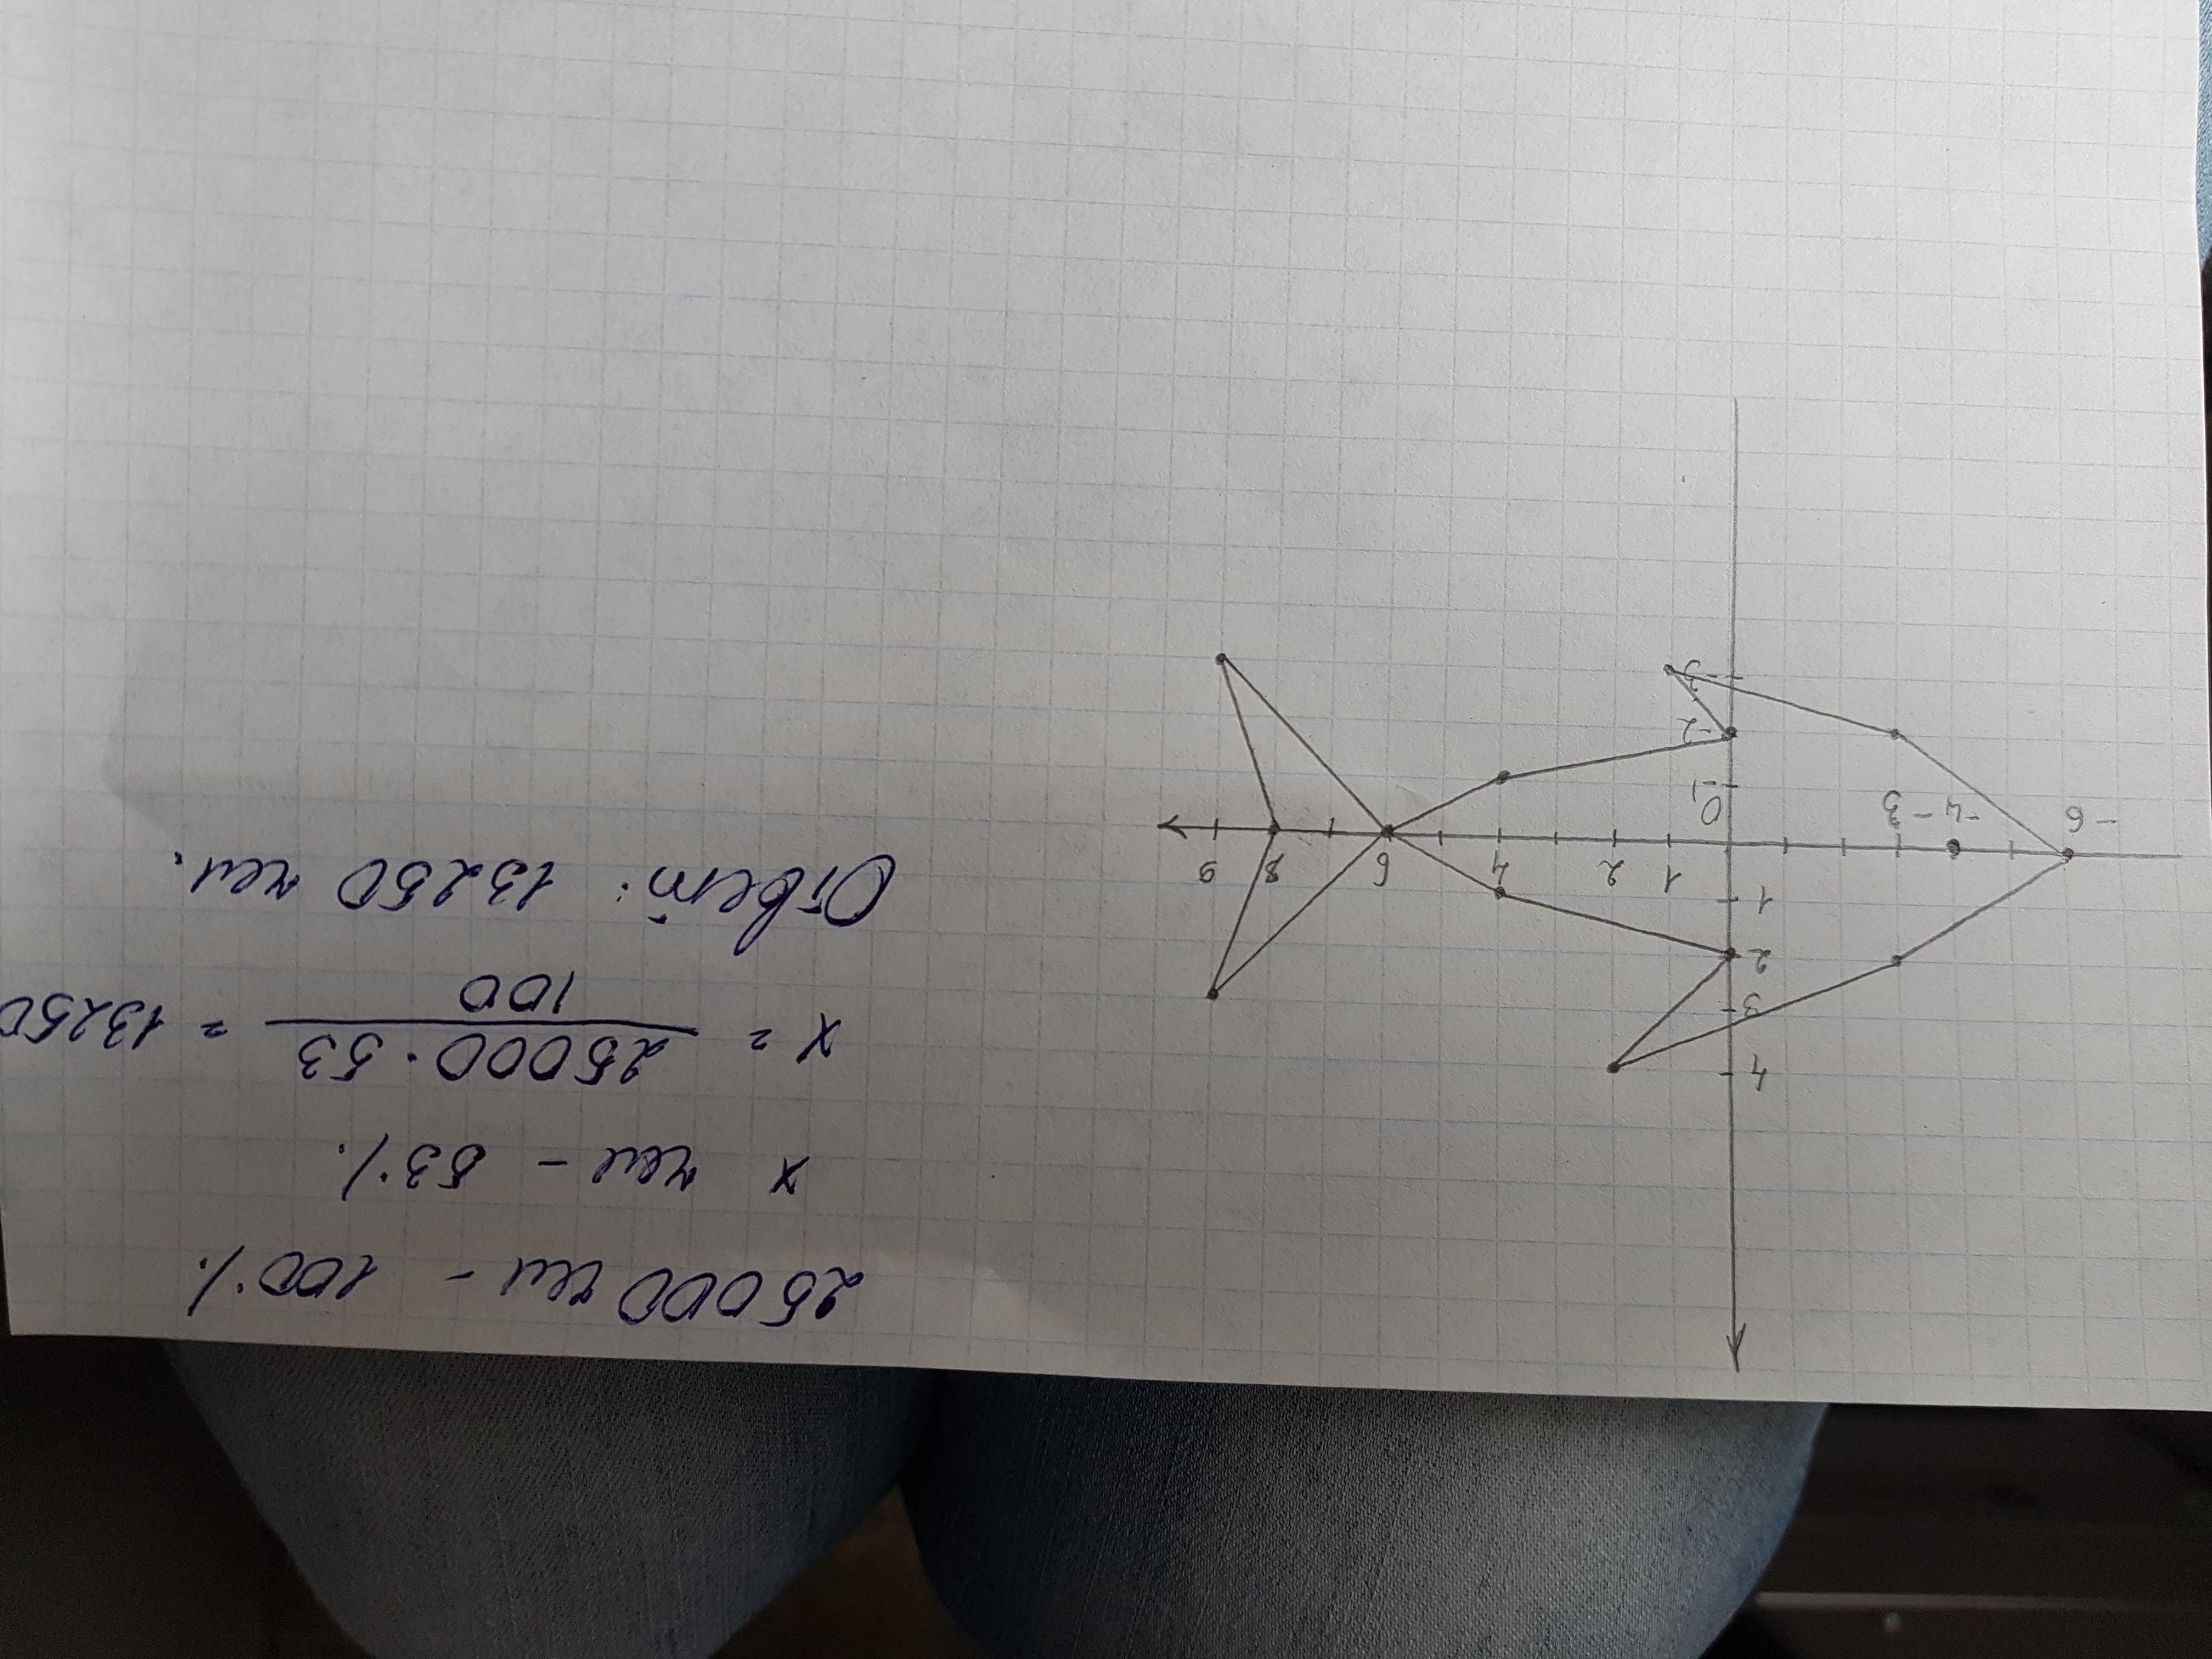 4
3
2
1
-6
-4
-3
0
1
2
4
6
8
9
-1
-2
-3
25000 чел - 100%
x чел - 53%
x = 25000 · 53 / 100 = 13250
Ответ: 13250 чел.